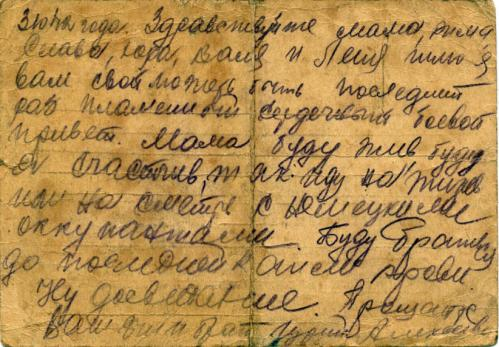 года. Здравствуйте мама, Рима
Слава, Юра, Валя и Лёня шлю я
вам свой может быть последний
раз пламенный сердечный боевой
привет. Мама буду жив буду
я счастлив, так иду на
или на смерть с немецкими
оккупантами. Буду драться
до последней капли крови.
Ну досвидание. Прощайте
Ваш сын брат